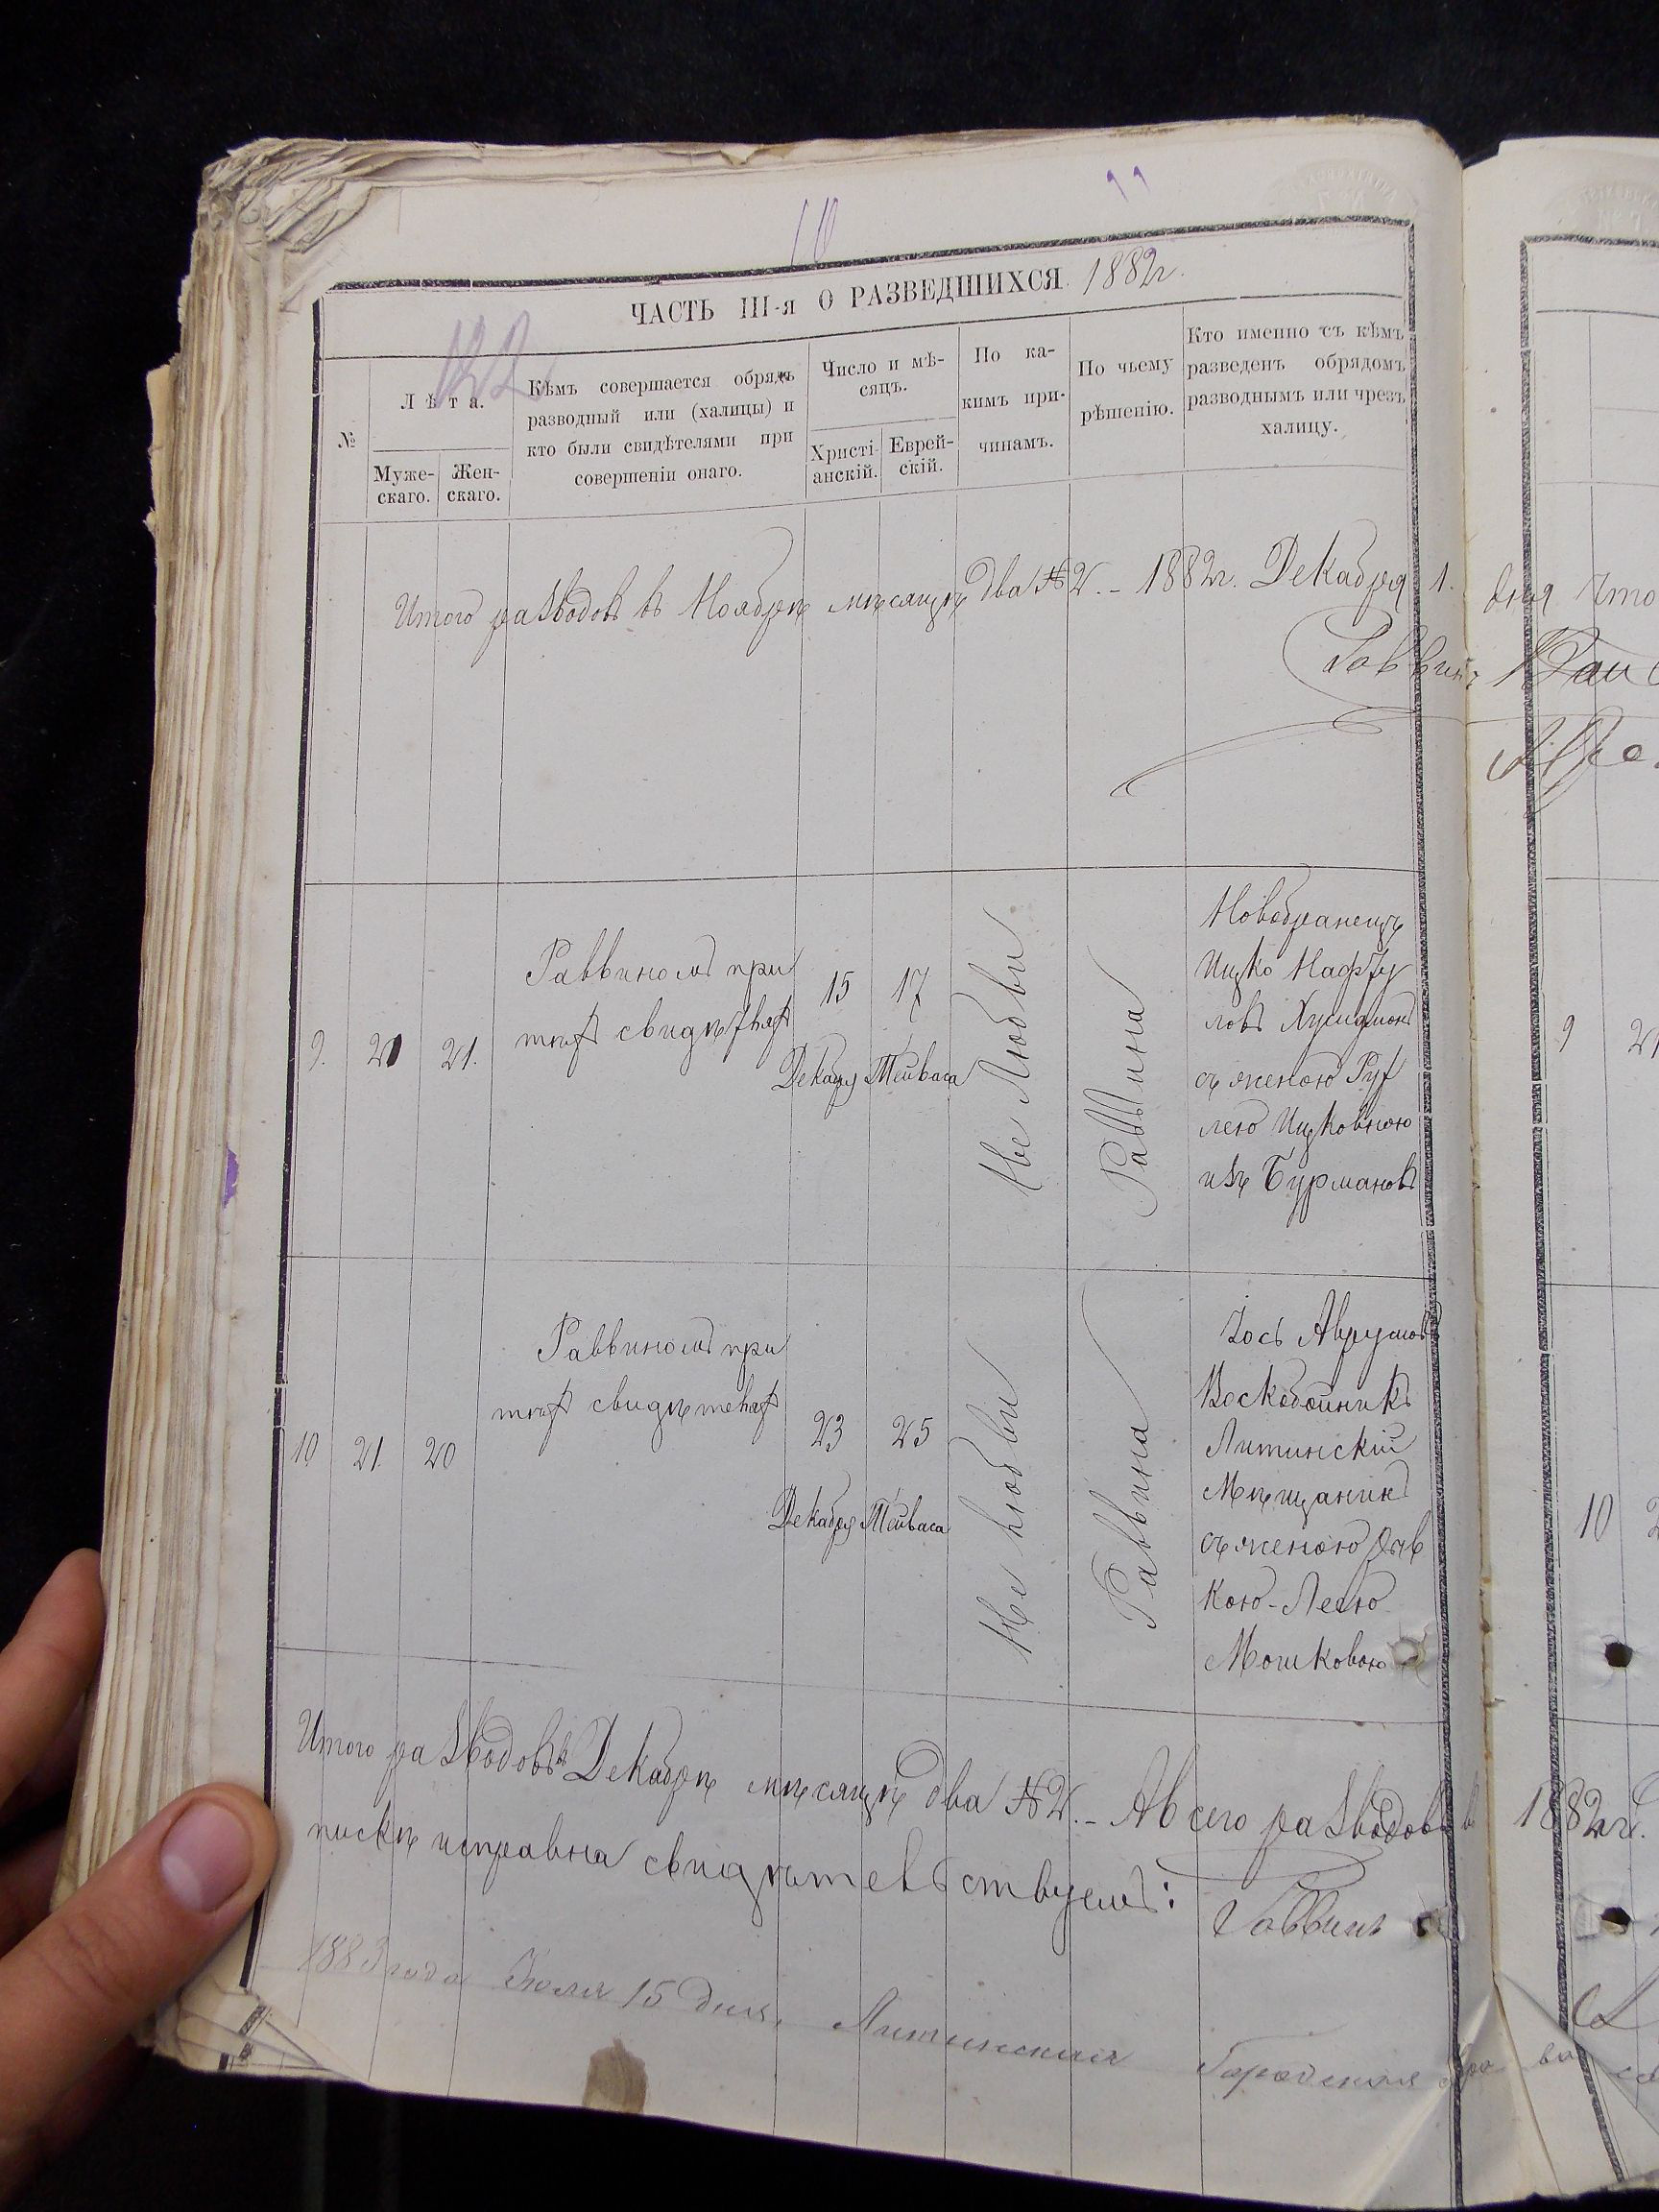 10
ЧАСТЬ III-я О РАЗВЕДШИХСЯ 1882г.
122
№
Лѣта.
Муже-
скаго.
Жен-
скаго.
Кѣмъ совершается обрядъ
разводный или (халицы) и
кто были свидѣтелями при
совершеніи онаго.
Число и мѣ-
сяцъ.
Христі-
анскій.
Еврей-
скій.
По ка-
кимъ при-
чинамъ.
По чьему
рѣшенію.
Кто именно съ кѣмъ
разведенъ обрядомъ
разводнымъ или чрезъ
халицу.
Итого разводовъ въ Ноябрѣ мѣсяцѣ два №2. – 1882г. Декабря 1. дня что
Раввинъ
9.
21.
Раввиномъ при
15
Декабря
17
Тейваса
Не Любви
Раввина
Новобранецъ
Ицко Нафту
ловъ
съ женою Рух
лею Ицковною
изъ Бурмановъ
9
10
21.
20
Раввиномъ при
23
Декабря
25
Тейваса
Не Любви
Раввина
Іось Аврумовъ
Воскобойникъ
Литинскій
Мѣщанинъ
съ женою Рив
кою-Леею
Мошковою
10
Итого разводовъ въ Декабрѣ мѣсяцѣ два №2. – А всего разводовъ въ 1882г.
пискѣ исправна свидѣтельствуемъ:
Раввинъ
1883 года Июля 15 дня. Литинская Городская